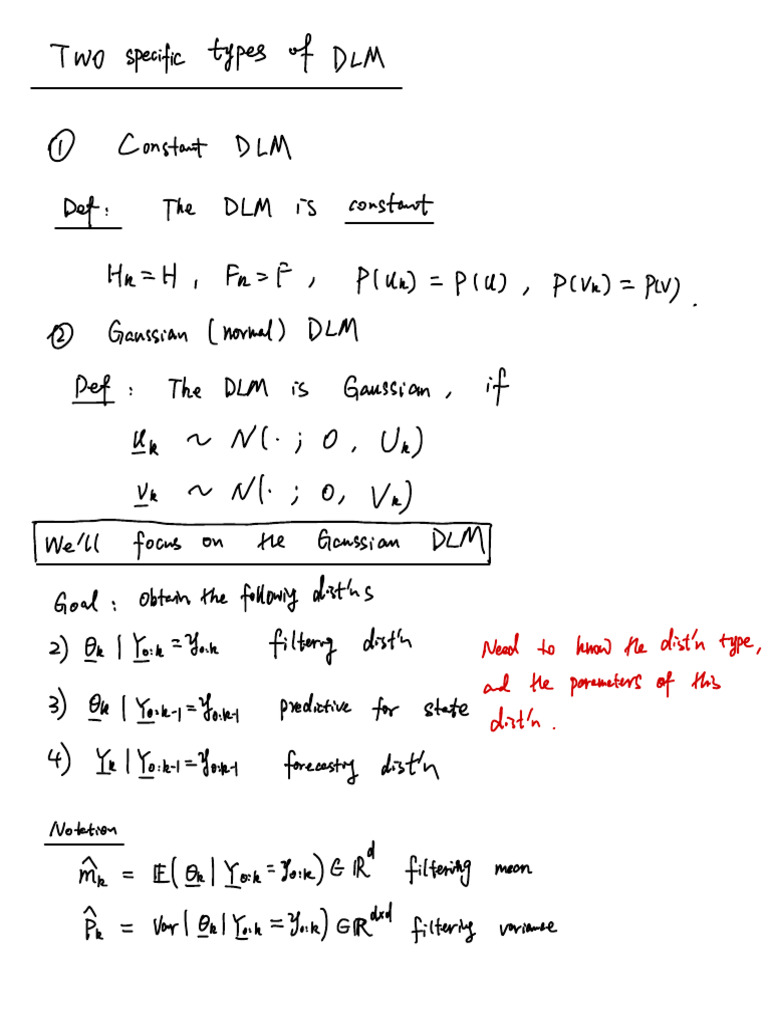 Two specific types of DLM
① Constant DLM
Def: The DLM is constant
Hₖ = H, Fₖ = F, P(uₖ) = P(u), P(vₖ) = P(v).
② Gaussian (normal) DLM
Def: The DLM is Gaussian, if
uₖ ~ N(·; 0, Uₖ)
vₖ ~ N(·; 0, Vₖ)
We'll focus on the Gaussian DLM
Goal: obtain the following dist'ns
2) θₖ | Y₀:ₖ = y₀:ₖ filtering dist'n
3) θₖ | Y₀:ₖ₋₁ = y₀:ₖ₋₁ predictive for state
4) Yₖ | Y₀:ₖ₋₁ = y₀:ₖ₋₁ forecasting dist'n
Need to know the dist'n type,
and the parameters of this
dist'n.
Notation
m̂ₖ = 𝔼(θₖ | Y₀:ₖ = y₀:ₖ) ∈ ℝᵈ filtering mean
P̂ₖ = Var(θₖ | Y₀:ₖ = y₀:ₖ) ∈ ℝᵈˣᵈ filtering variance